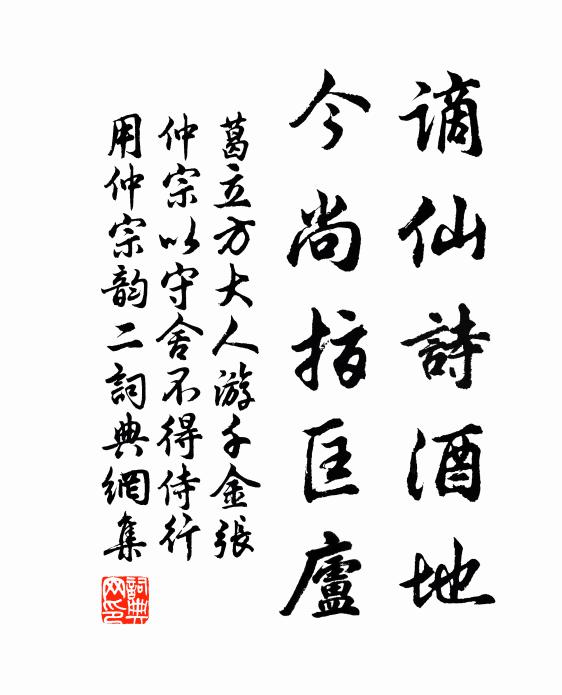 謫仙詩酒地
今尚指匡廬
葛立方大人游千金張
仲宗以守舍不得侍行
用仲宗韵二詞典網集
詞典
网印